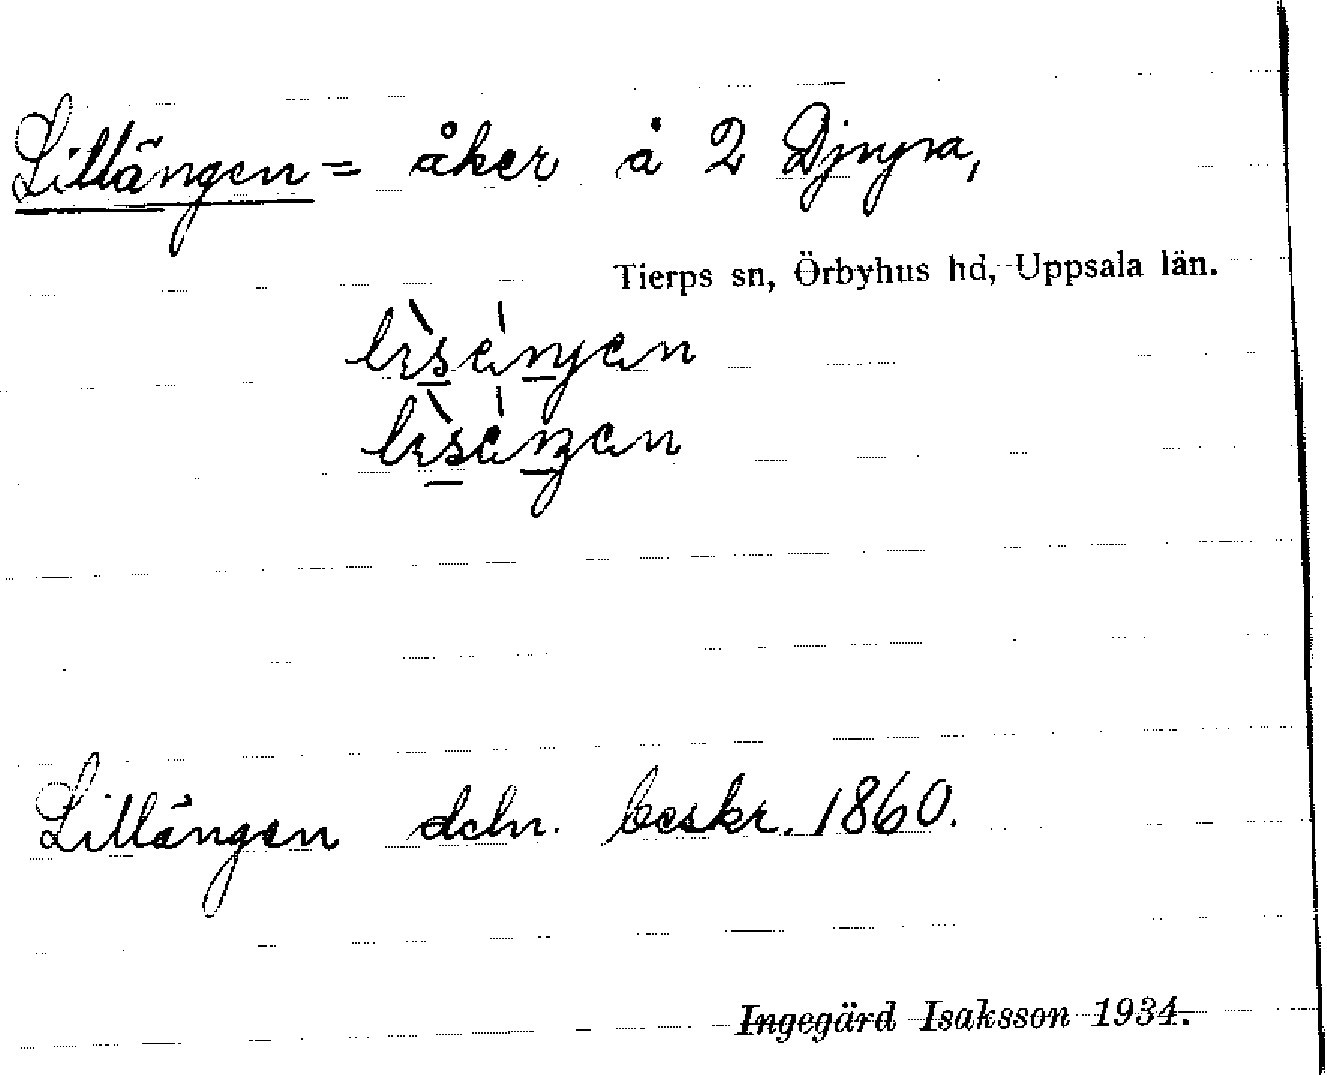 Lillängen = åker å 2 Djupa,
Tierps sn, Örbyhus hd, Uppsala län.
Lillängen dchn. beskr. 1860.
Ingegärd Isaksson 1934.